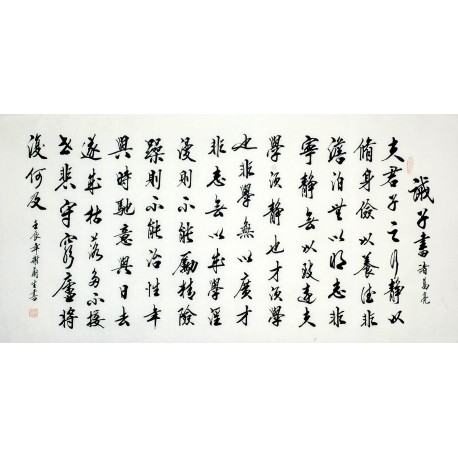 誡子書
諸葛亮
夫君子之行靜以
脩身儉以養德非
澹泊無以明志非
寧靜無以致遠夫
學須靜也才須學
也非學無以廣才
非志無以成學淫
漫則不能勵精險
躁則不能冶性年
與時馳意與日去
遂成枯落多不接
世悲守窮廬將
復何及
壬辰年書